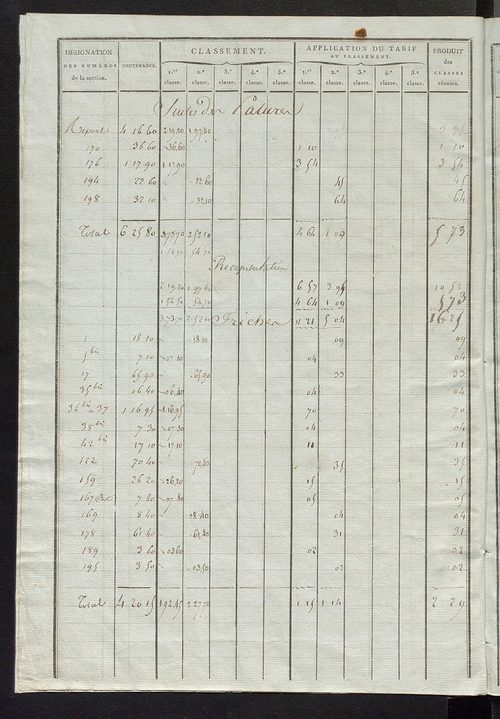 DÉSIGNATION DES NUMÉROS de la section. CONTENANCE. CLASSEMENT. APPLICATION DU TARIF AU CLASSEMENT. PRODUIT des CLASSES réunies.
1.re classe. 2.e classe. 3.e classe. 4.e classe. 5.e classe. 1.re classe. 2.e classe. 3.e classe. 4.e classe. 5.e classe.
Suite des Patures
Report 4 16 60 2 19 20 1 97 40
170 36 60 36 60 1 10 1 10
176 1 17 90 1 17 90 3 54 3 54
194 22 60 22 60 45 45
198 32 10 32 10 64 64
Total 6 25 80 3 73 70 2 52 10 4 64 1 09 5 73
1 54 50 54 70
Recapitulation
2 19 20 1 97 40 6 57 3 95 10 52
1 54 50 54 70 4 64 1 09 5 73
3 73 70 2 52 10 11 21 5 04 16 25
Friches
1 18 10 18 10 09 09
5 bis 7 10 07 10 04 04
17 65 90 65 90 33 33
35 bis 06 40 06 40 04 04
36 bis a 37 1 16 95 1 16 95 70 70
38 bis 7 30 07 30 04 04
42 bis 17 10 17 10 11 11
122 70 40 70 40 35 35
159 26 20 26 20 15 15
167 bis 7 80 07 80 05 05
169 8 40 8 40 04 04
178 61 40 61 40 31 31
189 3 60 03 60 02 02
195 3 50 03 50 02 02
Total 4 20 15 1 92 45 2 27 70 1 15 1 14 2 29